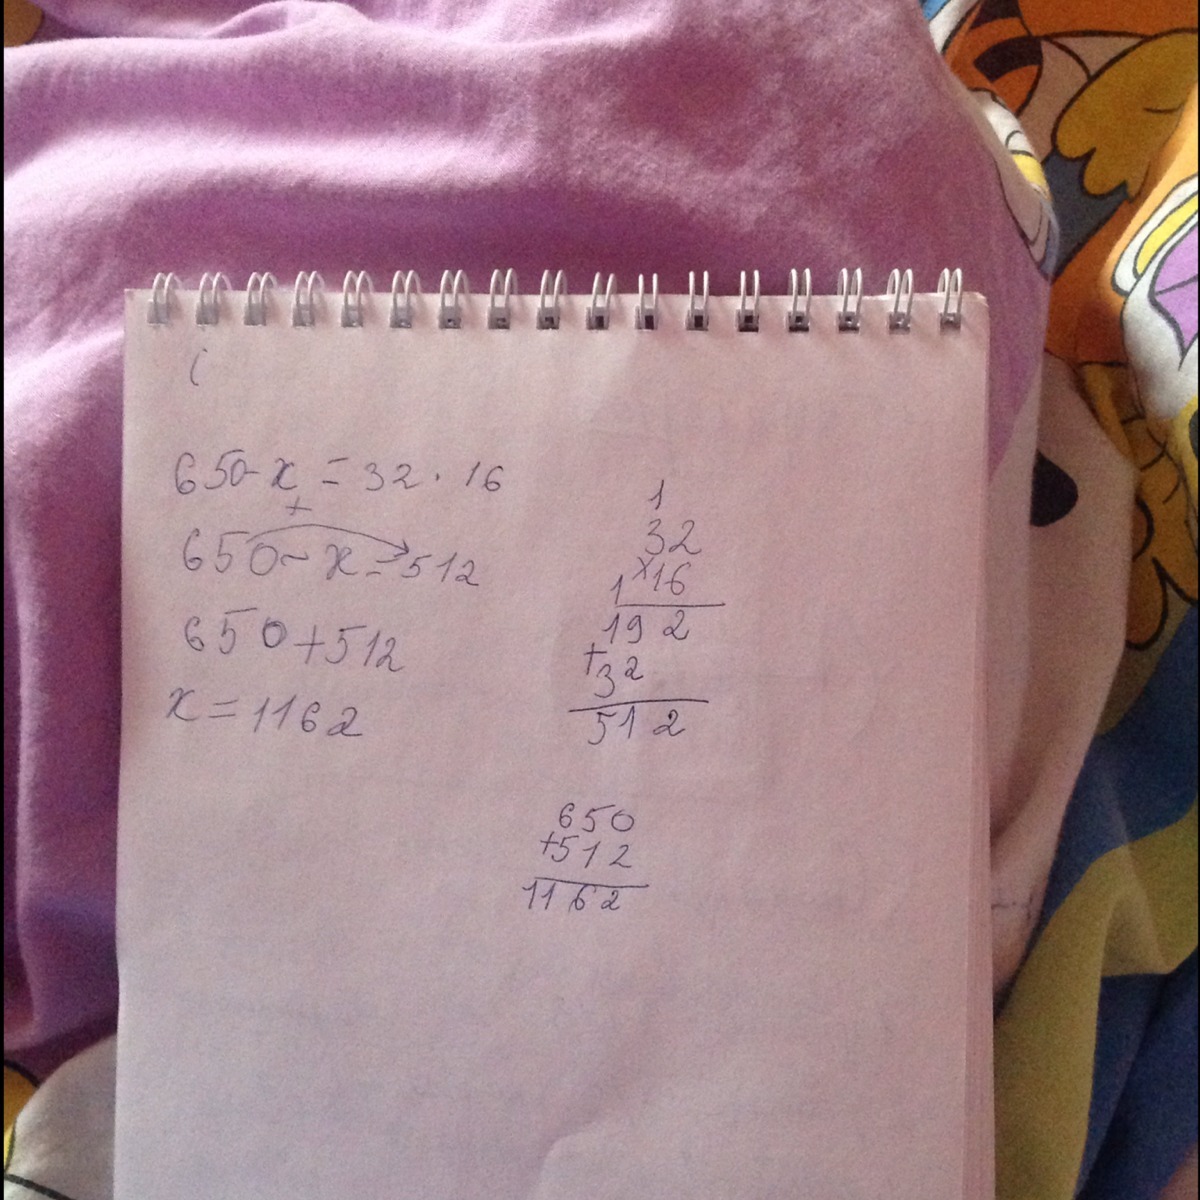 (
650-x=32·16
+
650-x=512
650+512
x=1162
1
32
x16
1
192
+32
512
650
+512
1162